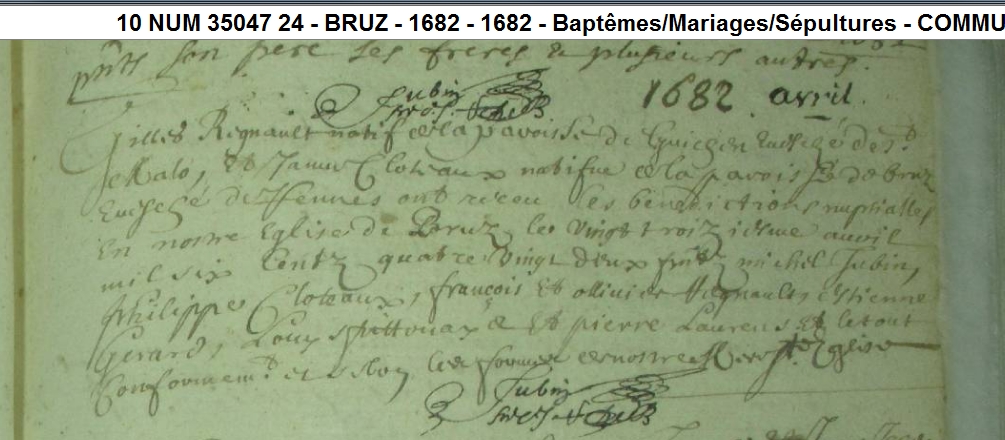 10 NUM 35047 24 - BRUZ - 1682 - 1682 - Baptêmes/Mariages/Sépultures - COMMU
son pere ses freres & plusieurs autres.
Jubin
1682 avril
Gilles Regnault natif de la paroisse de Guichen Evesché de St
Malo, et Janne Cloteaux natifve de la paroisse de bruz
Evesché de Rennes ont receu les benedictions nuptialles
En nostre Eglise de Bruz le vingt troiziesme avril
mil six Centz quatre vingt deux michel Jubin,
Philippe Cloteaux, françois Et ollivier Regnault, Estienne
Gerard, Louys Et pierre Laurens Et le tout
Conformemt et selon les formes de nostre Mere Ste Eglise
Jubin